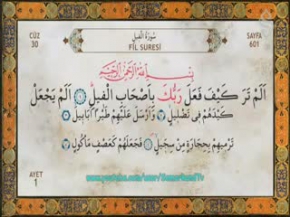 CÜZ
30
سُورَةُ الْفِيلِ
FİL SURESİ
SAYFA
601
بِسْمِ اللّٰهِ الرَّحْمٰنِ الرَّحِيمِ
اَلَمْ تَرَ كَيْفَ فَعَلَ رَبُّكَ بِاَصْحَابِ الْفِيلِ ۝ اَلَمْ يَجْعَلْ
كَيْدَهُمْ فِى تَضْلِيلٍ ۝ وَاَرْسَلَ عَلَيْهِمْ طَيْرًا اَبَابِيلَ ۝
تَرْمِيهِمْ بِحِجَارَةٍ مِنْ سِجِّيلٍ ۝ فَجَعَلَهُمْ كَعَصْفٍ مَأْكُولٍ ۝
AYET
1